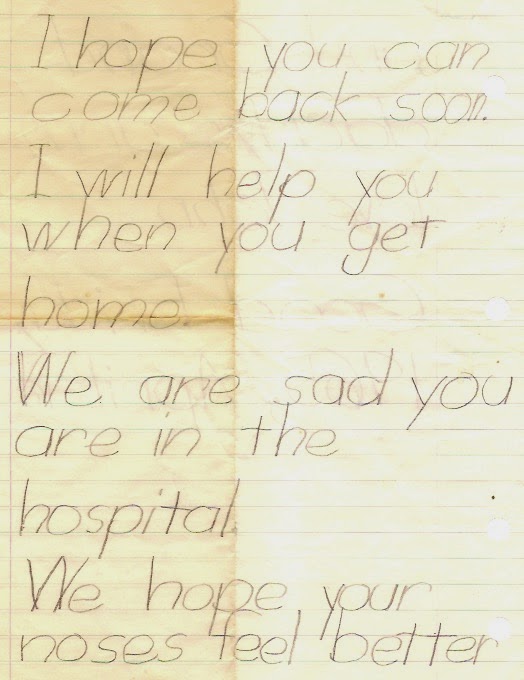 I hope you can
come back soon.
I will help you
when you get
home.
We are sad you
are in the
hospital.
We hope your
noses feel better